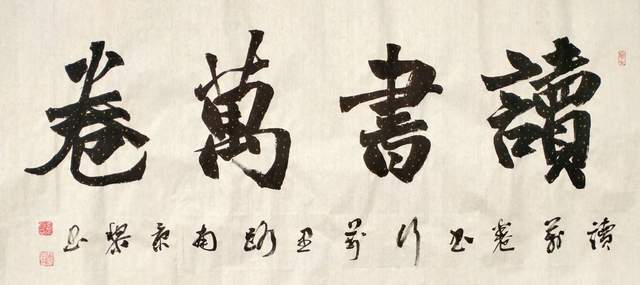 讀書萬卷
讀萬卷書行萬里路南京書